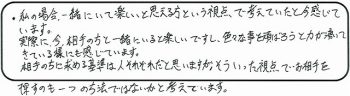 ・私の場合、一緒にいて楽しいと思える方という視点で考えていたと今感じて
います。
実際に、今、相手の方と一緒にいると楽しいですし、色々な事を頑ばろうと力が湧いて
きている様にも感じています。
相手の方に求める基準は人それぞれだと思いますが、そういった視点でお相手を
探すのも一つの方法ではないかと考えています。